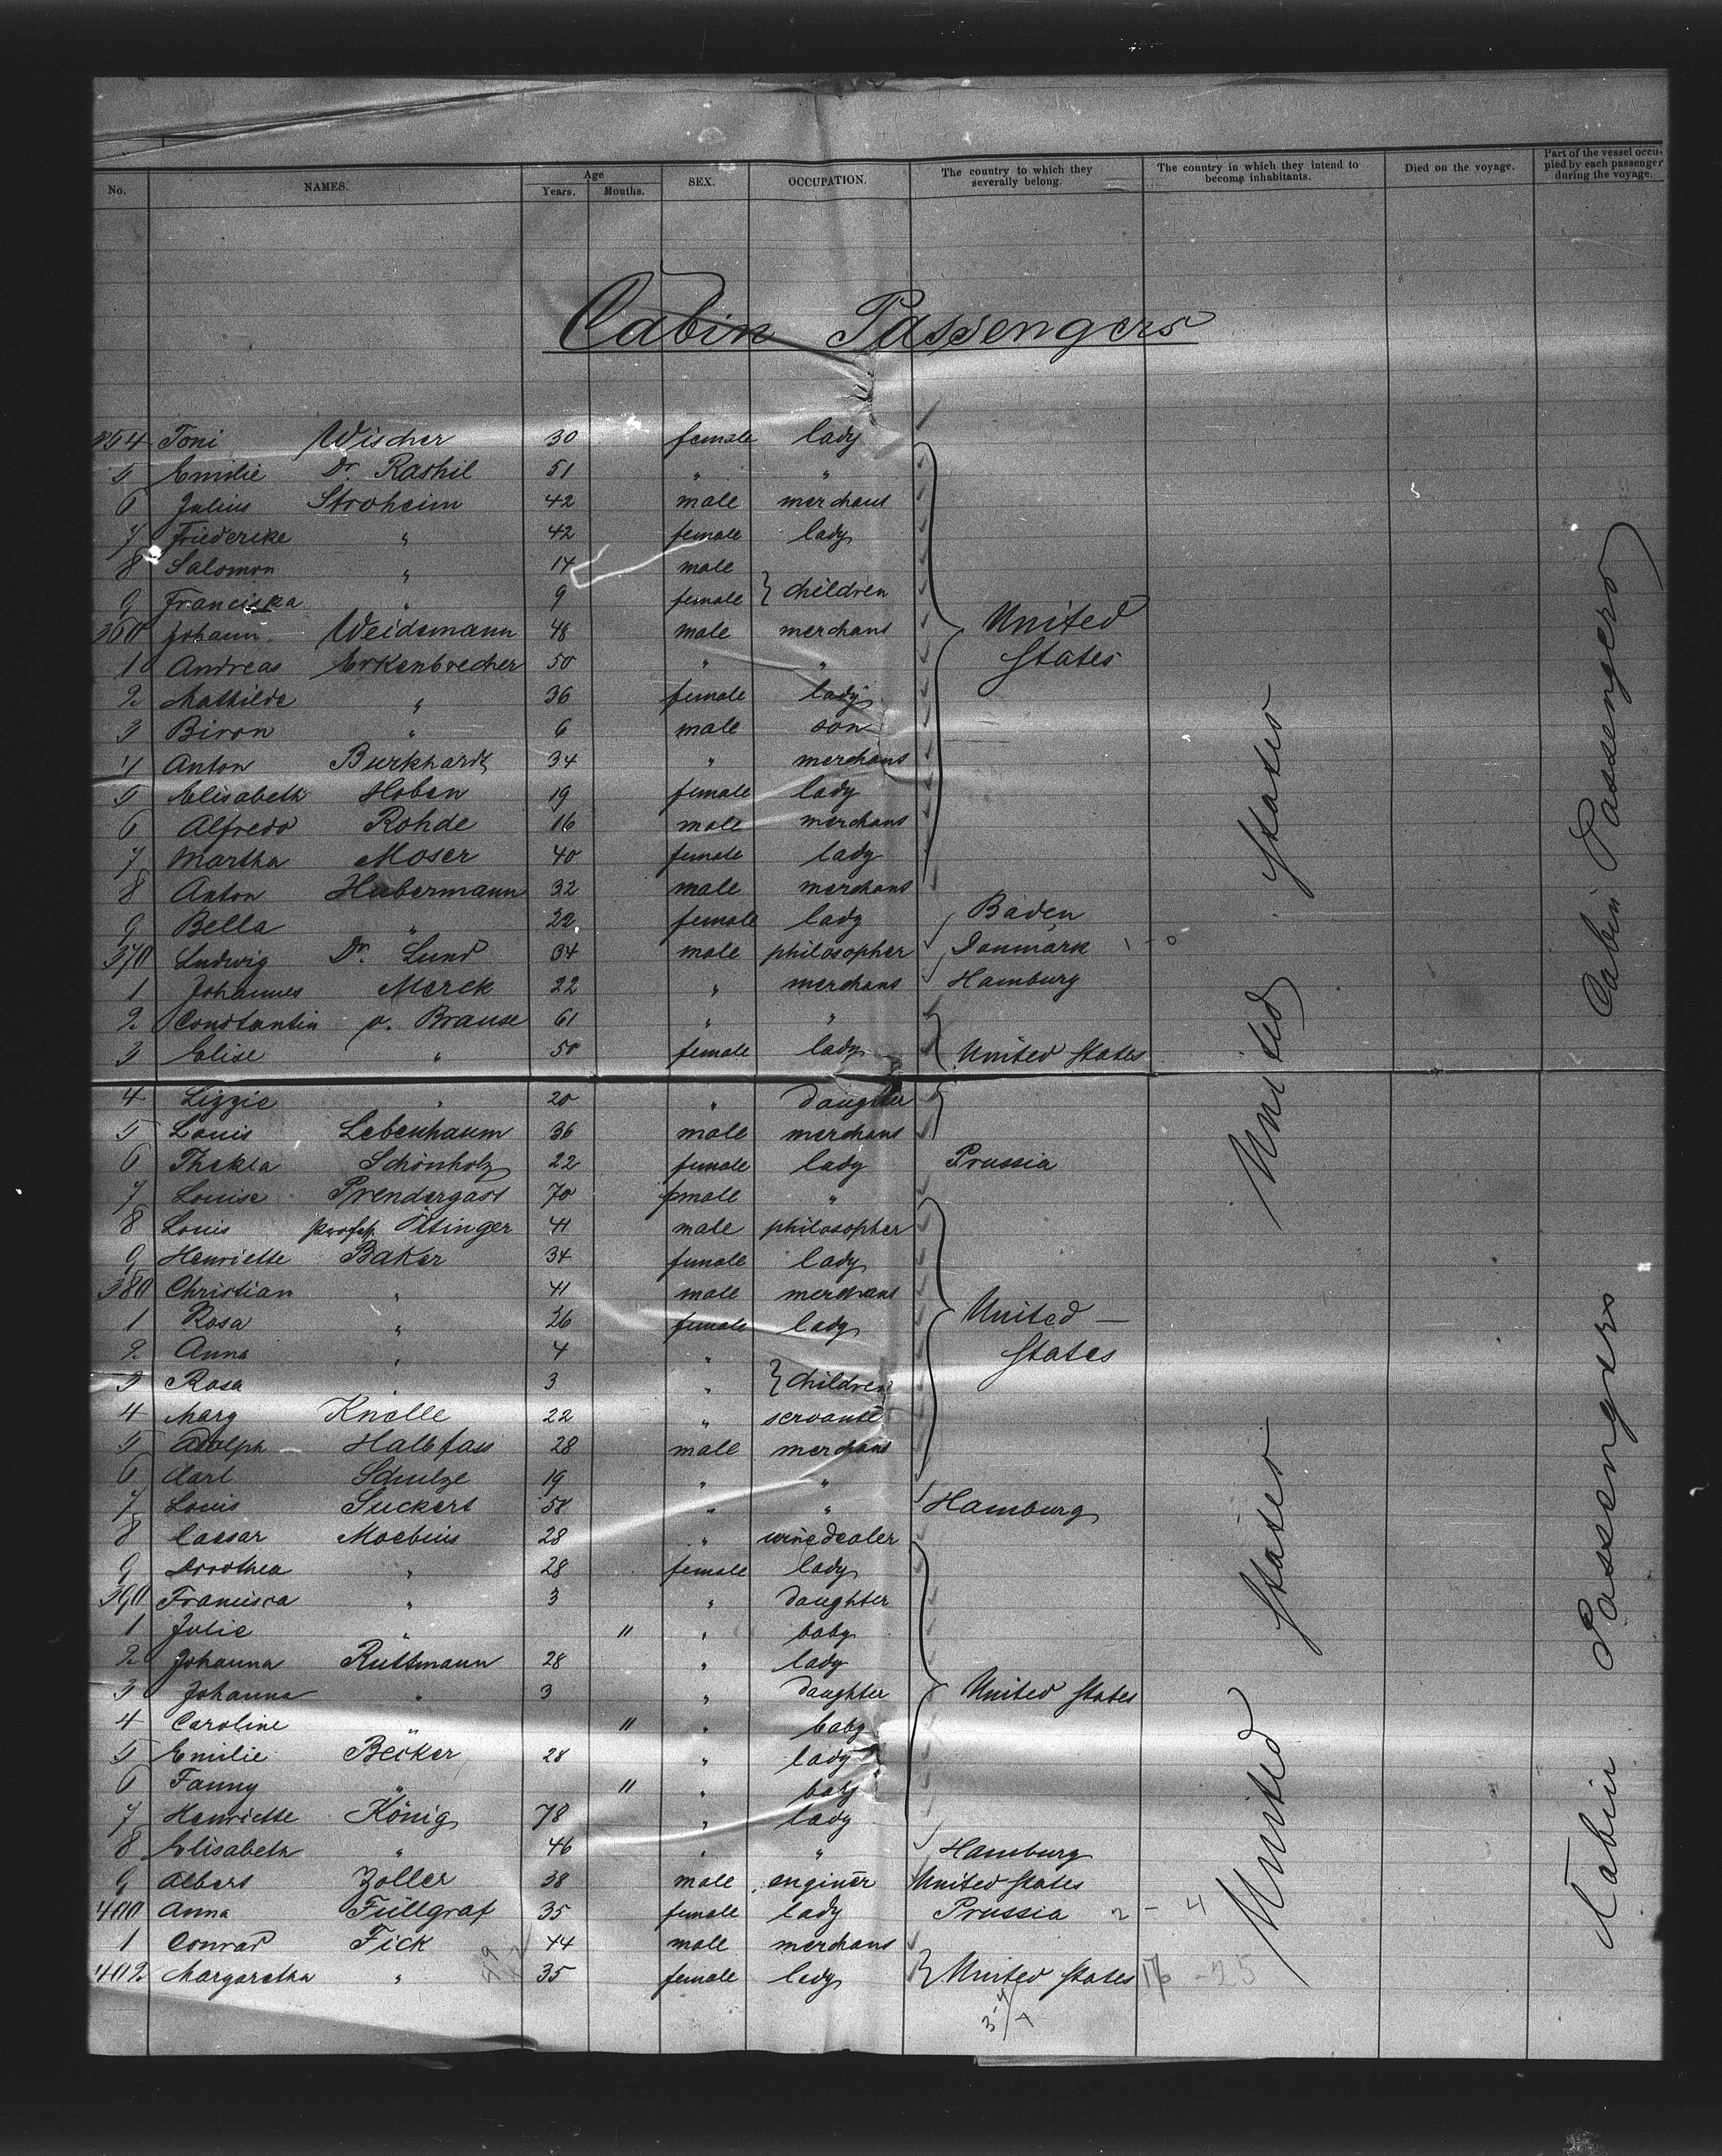 No. NAMES. Age Years. Months. SEX. OCCUPATION. The country to which they severally belong. The country in which they intend to become inhabitants. Died on the voyage. Part of the vessel occupied by each passenger during the voyage.
Cabin Passengers
354 Toni Wischer 30 female lady
5 Emilie Dr. Rashil 51 " "
6 Julius Stroheim 42 male merchant
7 Friederike " 42 female lady
8 Salomon " 14 male
9 Franciska " 9 female } children
360 Johann Weidemann 48 male merchant United
1 Andreas Erkenbrecher 50 " " States
2 Mathilde " 36 female lady
3 Biron " 6 male son
4 Anton Burkhardt 34 " merchant
5 Elisabeth Hoben 19 female lady
6 Alfredo Rohde 16 male merchant
7 Martha Moser 40 female lady
8 Anton Hubermann 32 male merchant
9 Bella " 22 female lady Baden
370 Ludwig Dr. Lund 34 male philosopher Danmark
1 Johannes Merck 22 " merchant Hamburg
2 Constantin v. Brause 61 " "
3 Elise " 50 female lady United States
4 Lizzie " 20 " daughter
5 Louis Lebenhaum 36 male merchant
6 Thekla Schönholz 22 female lady Prussia
7 Louise Prendergast 70 female "
8 Louis profess. Ottinger 41 male philosopher
9 Henriette Baker 34 female lady
380 Christian " 41 male merchant
1 Rosa " 26 female lady United
2 Anna " 4 " States
3 Rosa " 3 " } children
4 Mary Knolle 22 " servante
5 Adolph Halbfass 28 male merchant
6 Carl Schulze 19 " "
7 Louis Suckert 58 " " Hamburg
8 Caesar Moebius 28 " winedealer
9 Dorothea " 28 female lady
390 Francisca " 3 " daughter
1 Julie " 11 " baby
2 Johanna Ruttmann 28 " lady
3 Johanna " 3 " daughter United States
4 Caroline " 11 " baby
5 Emilie Becker 28 " lady
6 Fanny " 11 " baby
7 Henriette König 78 " lady
8 Elisabeth " 46 " " Hamburg
9 Albert Zoller 38 male enginer United States
400 Anna Füllgraf 35 female lady Prussia 2 - 4
1 Conrad Fick 44 male merchant
402 Margaretha " 35 female lady United States
United States
United States
Cabin Passengers
Cabin Passengers